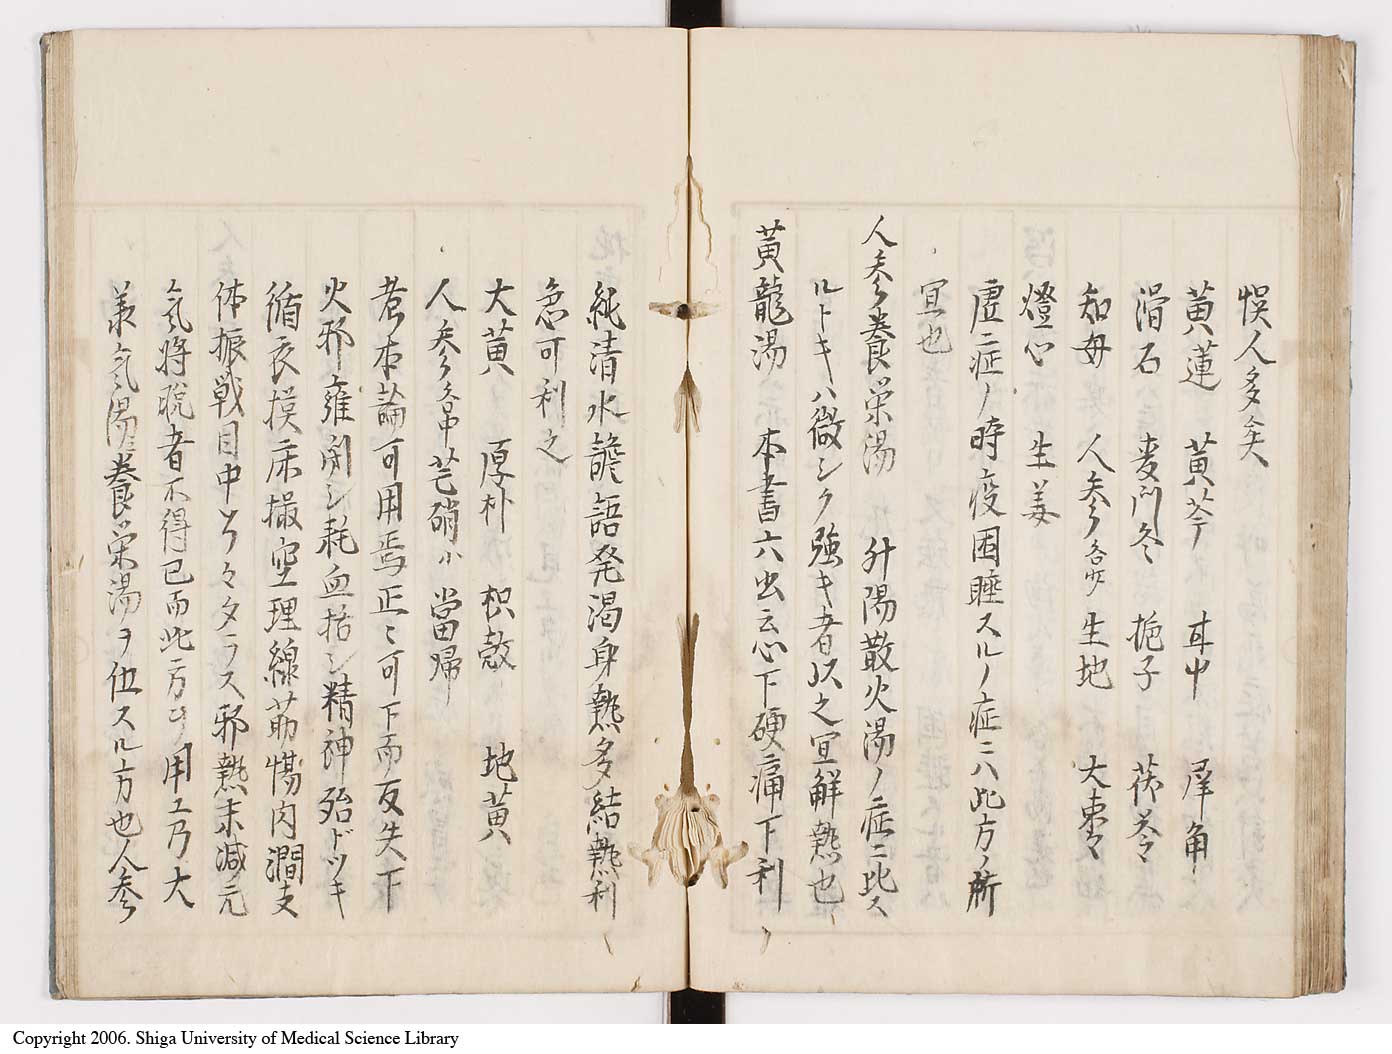 悞人多矣
黄蓮 黄芩 甘中 犀角
滑石 麦門冬 梔子 茯苓
知母 人参各少 生地 大棗
燈心 生姜
虚ニ症ノ時疫困睡スルノ症ニハ此方ノ所
宜也
人参養栄湯 升陽散火湯ノ症ニ比ス
ルトキハ微シク強キ者以之宜解熱也
黄龍湯 本書六虫云心下硬痛下利
純清水譫語発渇身熱多結熱利
急可利之
大黄 厚朴 枳殻 地黄
人参各中 芒硝小 當帰
者本論可用焉正ニ可下而反失下
火邪壅閉シ耗血括シ精神殆ドツキ
循衣摸床撮空理線筋惕肉瞤支
体振戦目中クラ々タラス邪熱未减元
気将脱者不得已而此方ヲ用ユ乃大
承気湯ニ養栄湯ヲ伍スル方也人参